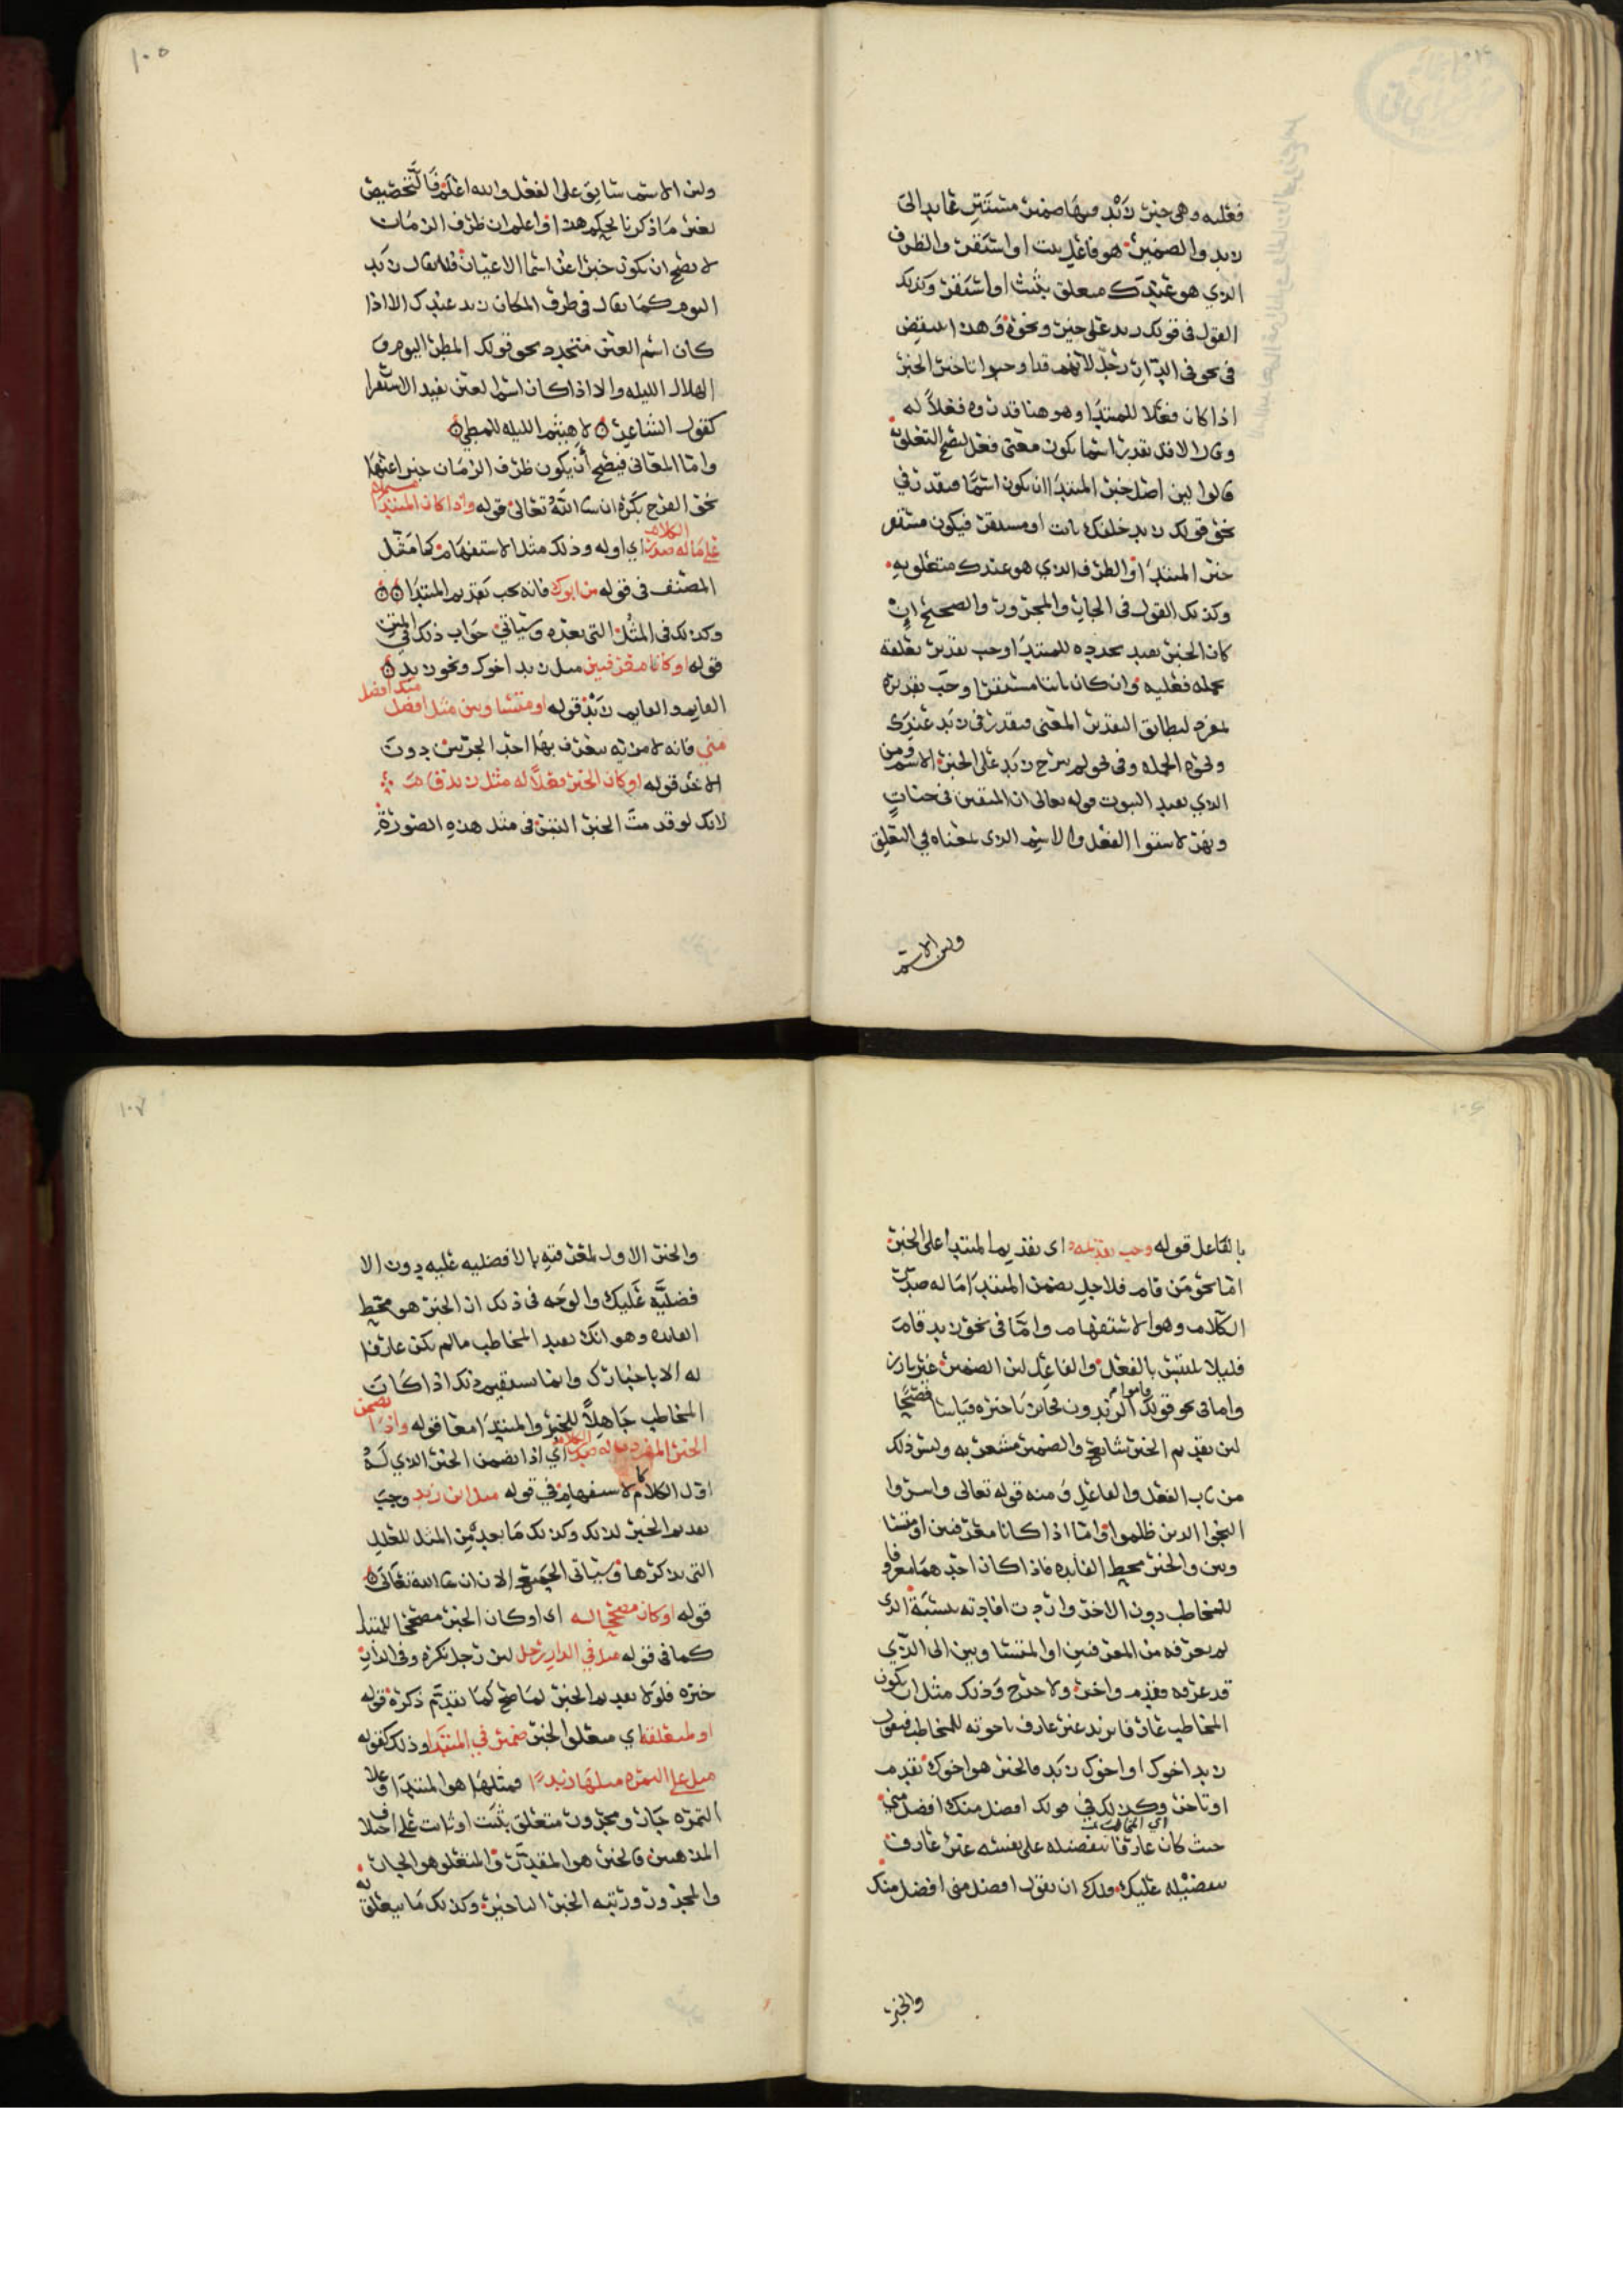 فعليه وهي خبر زيد وفيها ضمير مستتر عايد الى
زيد والضمير هو فاعل ثبت او استقر والظرف
الذي هو عندك متعلق بثبت او استقر وكذلك
القول في قولك زيد على حين ونحوه وهذا
في نحو في الدار رجل لانهم قد اوجبوا تاخير الخبر
اذا كان فعلا للمبتدا وهو هنا قدروه فعلا له
وقال الاقل تقدير اسما يكون معنى فعل ليصح التعلق
قالوا لين اصل خبر المبتدا ان يكون اسما فيقدر في
نحو قولك زيد خلفك ثابت او مستقر فيكون مستقر
خبر المبتدا والظرف الذي هو عندك متعلق به
وكذلك القول في الجار والمجرور والصحيح ان
كان الخبر يفيد تجدده للمبتدا وجب تقدير تعلقه
بجمله فعليه وان كان ثابتا مستقرا وجب تقديره
لمفرد ليطابق التقدير المعنى فيقدر في زيد عندك
ونحوه الجمله وفي نحو لم يبرح زيد على الخبر الاسم ومن
الذي يفيد الثبوت قوله تعالى ان المتقين في جنات
ونهر لاستوا الفعل والاسم الذي بمعناه في التعلق
ولين الاسم
١٠٥
ولين الاسم سابق على الفعل والله اعلم فالتخصيص
بغير ما ذكرنا تحكم هذا واعلم ان ظرف الزمان
لا يصح ان يكون خبرا عن اسما الاعيان فلا يقال زيد
اليوم كما يقال في ظرف المكان زيد عندك الا اذا
كان اسم العين متجدد نحو قولك المطر اليوم و
الهلال الليله والا اذا كان اسما لعين يفيد الاستقرا
كقول الشاعر لا هيثم الليله للمطي
واما المعاني فيصح ان يكون ظرف الزمان خبرا عنها
نحو الفرح بكره ان شا الله تعالى قوله واذا كان المبتدا مشتملا
على ما له صدر الكلام اي اوله وذلك مثل الاستفهام كما مثل
المصنف في قوله من ابوك فانه يجب تقديم المبتدا
وكذلك في المثل التي بعده وسياتي جواب ذلك في المتن
قوله او كانا معرفتين مثل زيد اخوك ونحو زيد
القايم والقايم زيد قوله او متساويين مثل افضل منك افضل
مني فانه لا مزيه يعرف بها احد الجزئين دون
الاخر قوله او كان الخبر فعلا له مثل زيد قام
لانك لو قدمت الخبر التبس في مثل هذه الصورة
١٠٦
بالفاعل قوله وجب تقديمه اي تقديم المبتدا على الخبر
اما نحو من قام فلاجل تضمن المبتدا ما له صدر
الكلام وهو الاستفهام واما في نحو زيد قام
فليلا يلتبس بالفعل والفاعل لين الضمير غير بارز
واما في نحو قولك قاموا الزيدون فجايز تاخيره قياسا فصيحا
لين تقديم الخبر شايع والضمير مشعر به وليس ذلك
من باب الفعل والفاعل ومنه قوله تعالى واسروا
النجوى الذين ظلموا واما اذا كانا معرفتين او متسا
ويين والخبر محط الفايده فاذا كان احدهما معروفا
للمخاطب دون الاخر واردت افادته بنسبة الذي
لم يعرفه من المعرفتين او المتساويين الى الذي
قد عرفه فقدم واخر ولا حرج وذلك مثل ان يكون
المخاطب عارفا بزيد غير عارف باخوته للمخاطب فيقول
زيد اخوك او اخوك زيد فالخبر هو اخوك تقدم
او تاخر وكذلك في قولك افضل منك افضل مني
اي المخاطب
حيث كان عارفا بتفضيله على نفسه غير عارف
بتفضيله عليك ولك ان تقول افضل مني افضل منك
والخبر
١٠٧
والخبر الاول لمعرفته بالافضليه عليه دون الا
فضليه عليك والوجه في ذلك ان الخبر هو محط
الفايده وهو انك تفيد المخاطب ما لم يكن عارفا
له الا باخبارك وانما يستقيم ذلك اذا كان
المخاطب جاهلا للخبر والمبتدا معا قوله واذا تضمن
الخبر المفرد ما له صدر الكلام اي اذا تضمن الخبر الذي له
اول الكلام كالاستفهام في قوله مثل اين زيد وجب
تقديم الخبر لذلك وكذلك ما بعد من المثل للعلل
التي يذكرها وسياتي الجميع الان ان شا الله تعالى
قوله او كان مصححا له اي او كان الخبر مصححا للمبتدا
كما في قوله مثل في الدار رجل لين رجل نكره وفي الدار
خبره فلولا تقديم الخبر لما صح كما تقدم ذكره قوله
او لمتعلقه اي متعلق الخبر ضمير في المبتدا وذلك كقوله
مثل على التمره مثلها زبدا فمثلها هو المبتدا وعلى
التمره جار ومجرور متعلق بثبت او ثابت على اختلاف
المذهبين فالخبر هو المقدر والمتعلق هو الجار
والمجرور ورتبه الخبر التاخير وكذلك ما يتعلق به